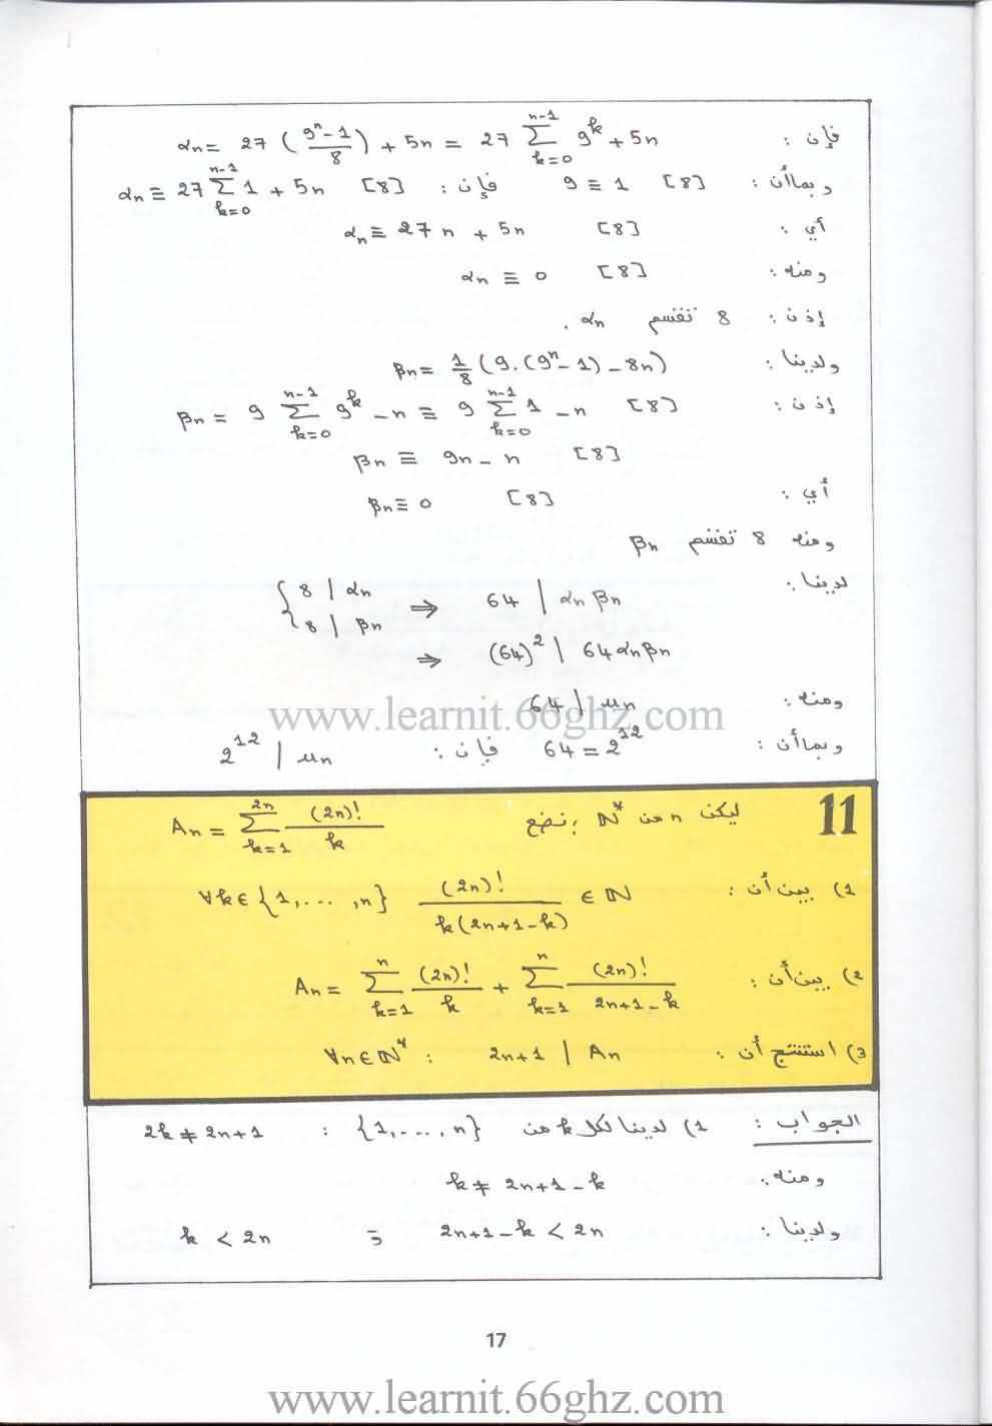 فإن : αn = 27 ( (9^n - 1)/8 ) + 5n = 27 Σ_{k=0}^{n-1} 9^k + 5n
وبماأن : 9 ≡ 1 [8] فإن : αn ≡ 27 Σ_{k=0}^{n-1} 1 + 5n [8]
أي : αn ≡ 27n + 5n [8]
ومنه : αn ≡ 0 [8]
إذن : 8 تقسم αn .
ولدينا : βn = 1/8 (9.(9^n - 1) - 8n)
إذن : βn = 9 Σ_{k=0}^{n-1} 9^k - n ≡ 9 Σ_{k=0}^{n-1} 1 - n [8]
βn ≡ 9n - n [8]
أي : βn ≡ 0 [8]
ومنه 8 تقسم βn
لدينا : { 8 | αn , 8 | βn ⇒ 64 | αn βn
⇒ (64)^2 | 64 αn βn
ومنه : 64 | un
www.learnit.66ghz.com
وبماأن : 64 = 2^12 فإن : 2^12 | un
11 ليكن n من N* ; نضع An = Σ_{k=1}^{2n} (2n)!/k
1) بين أن : ∀k ∈ {1,...,n} (2n)!/(k(2n+1-k)) ∈ N
2) بين أن : An = Σ_{k=1}^{n} (2n)!/k + Σ_{k=1}^{n} (2n)!/(2n+1-k)
3) استنتج أن : ∀n ∈ N* : 2n+1 | An
الجواب : 1) لدينا لكل k من {1,...,n} : 2k ≠ 2n+1
ومنه : k ≠ 2n+1-k
ولدينا : 2n+1-k < 2n و k < 2n
17
www.learnit.66ghz.com